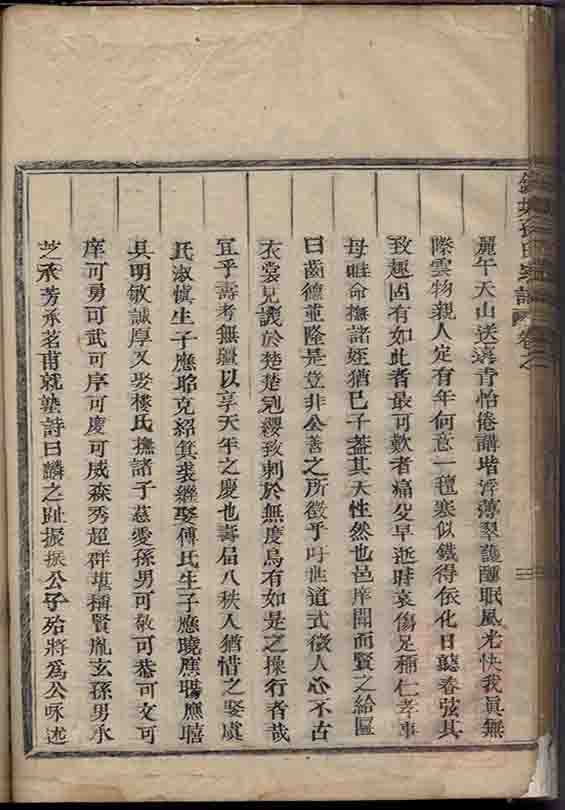 麗午天山送滴青怡倦譜堦浮薄翠護酣眠風光快我眞無
際雲物親人定有年何意一氊寒似鐵得依化日聽春弦其
致趣固有如此者最可歎者痛父早逝時哀傷足稱仁孝事
母唯命撫諸姪猶己子葢其天性然也邑庠聞而賢之給匾
曰齒德並隆是豈非公善之所徵乎吁世道式微人心不古
衣裳見譏於楚楚冠纓致刺於無度烏有如是之操行者哉
宜乎壽考無疆以享天年之慶也壽届八秩人猶惜之娶虞
氏淑愼生子應昭克紹箕裘繼娶傅氏生子應曉應暘應嘻
具明敏誠厚又娶樓氏撫諸子慈愛孫男可敬可恭可文可
庠可勇可武可序可慶可威森秀超群堪稱賢胤玄孫男承
芝承芳承茗甫就塾詩曰麟之趾振振公子殆將爲公咏述
孫氏宗譜 卷之一